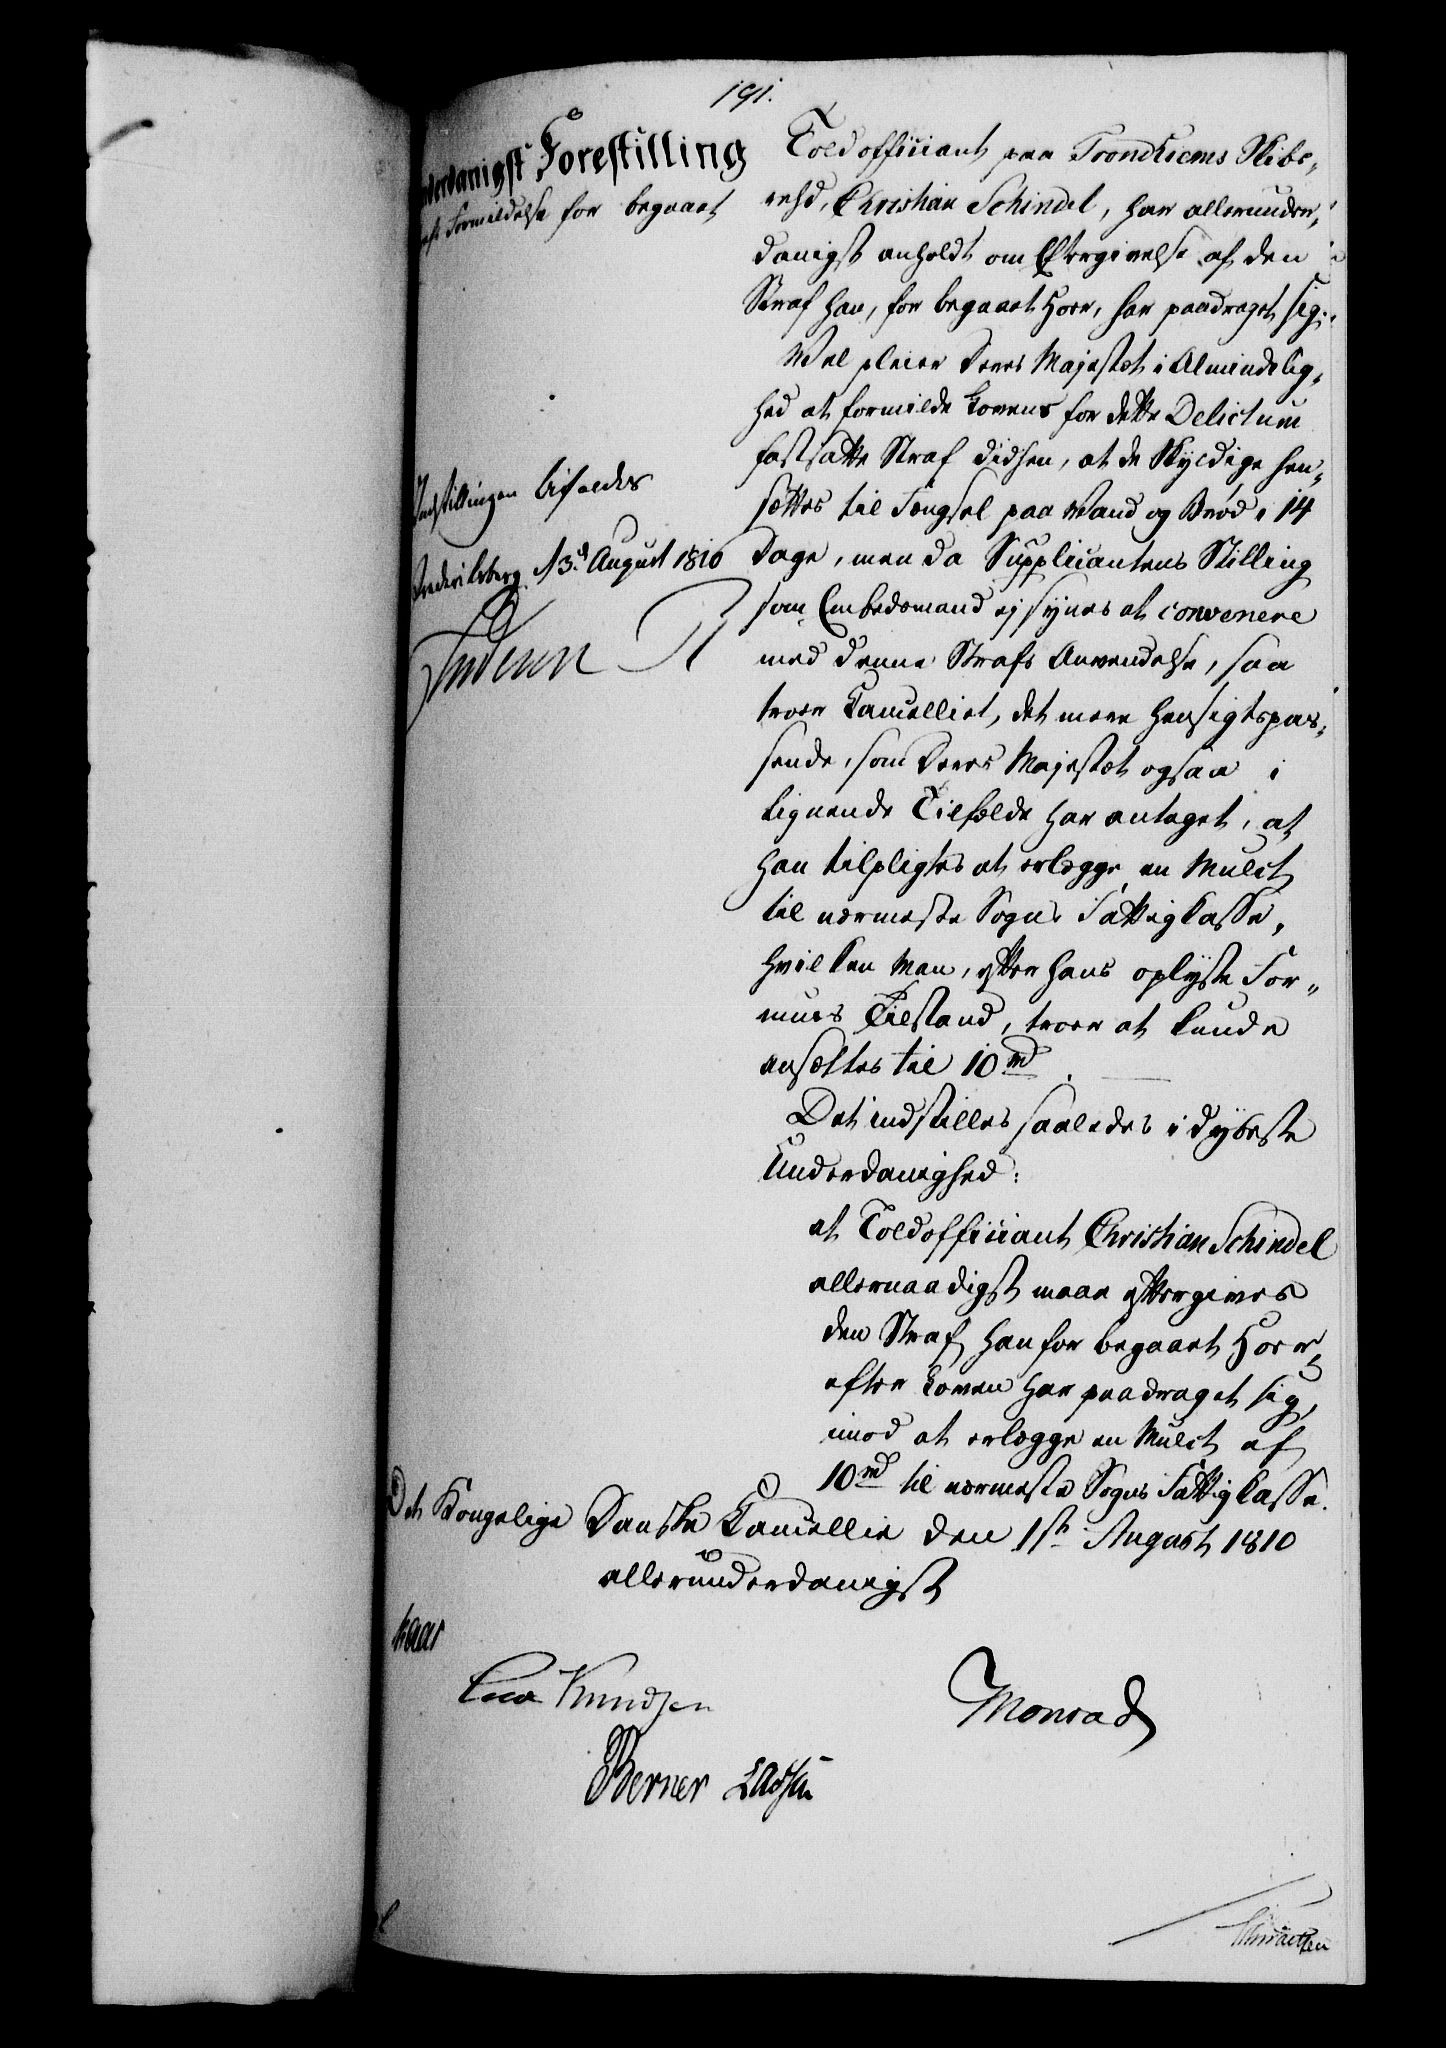 191.
Forestilling
Formildelse for begaaet
Indstillingen bifaldes
Frederiksberg d 3d August 1810
Frederik R
Toldofficiant paa Trondhiems Skibs,
rehd, Christian Schindel, har allerunder,
danigst anholdt om Eftergivelse af den
Straf han, for begaaet Hoer, har paadraget sig.
Vel pleier Deres Majestæt i Almindelig,
hed at formilde Lovens for dette Delictum
fastsatte Straf didhen, at de Skyldige hen,
sættes til Fængsel paa Vand og Brød i 14
Dage, men da Supplicantens Stilling
som Embedsmand ej synes at convenere
med denne Strafs Anvendelse, saa
troer Cancelliet, det mere hensigtspas,
sende, som Deres Majestæt ogsaa i
lignende Tilfælde har antaget, at
han tilpligtes at erlægge en Mulct
til nærmeste Sogns Fattigkasse,
hvilken Man, efter hans oplyste For,
mues Tilstand, troer at kunde
ansættes til 10 rd.
Det indstilles saaledes i dybeste
Underdanighed:
at Toldofficiant Christian Schindel
allernaadigst maae eftergives
den Straf han for begaaet Hoer,
efter Loven har paadraget sig,
imod at erlægge en Mulct af
10 rd til nærmeste Sogns Fattigkasse.
Det Kongelige Danske Cancellie den 1st August 1810
allerunderdanigst
Kaas
Cold Knudsen
Monrad
Berner Lassen